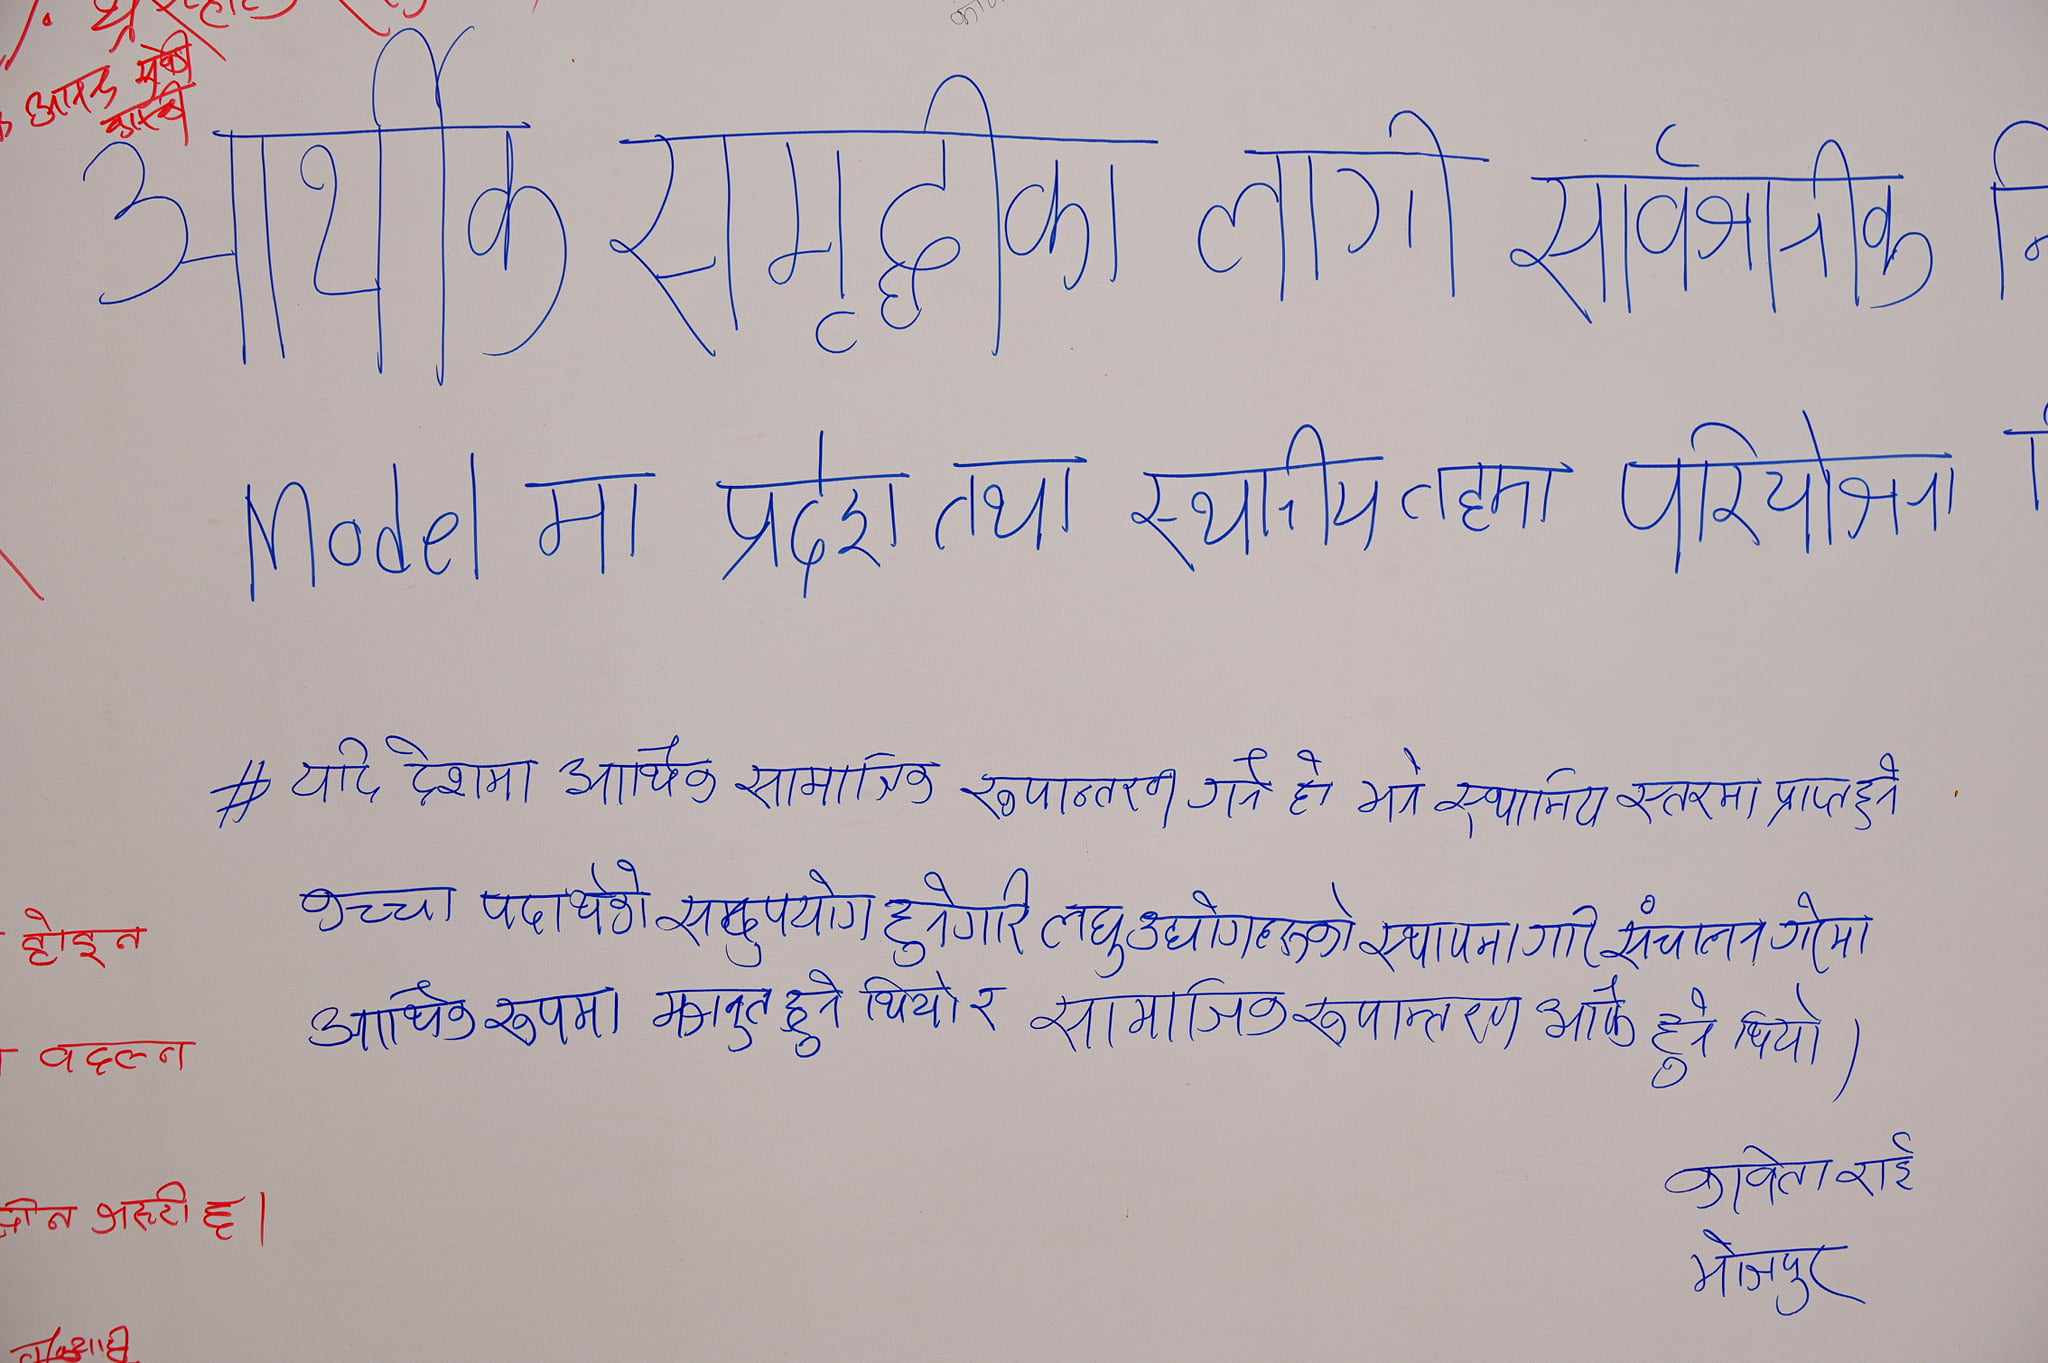 आर्थीक समृद्धीका लागी सार्वजानीक नि
Model मा प्रदेश तथा स्थानीय तहमा परियोजना
# यदि देशमा आर्थिक सामाजिक रूपान्तरण गर्ने हो भने स्थानिय स्तरमा प्राप्त हुने
कच्चा पदार्थको सदुपयोग हुनेगरि लघु उद्योगहरूको स्थापना गरि संचालन गरेमा
आर्थिक रूपमा मजबुत हुने थियो र सामाजिक रूपान्तरण आफै हुने थियो।
कविता राई
भोजपुर
होइन
बदल्न
जरुरी छ।